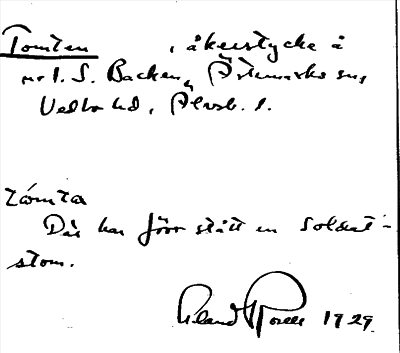 Tomten , åkerstycke å
nr 1. S. Backen, Ärtemarks sn,
Vedbo hd, Älvsb. l.
tómta
Där har förr stått en soldat-
stom.
Erland Rosell 1929.